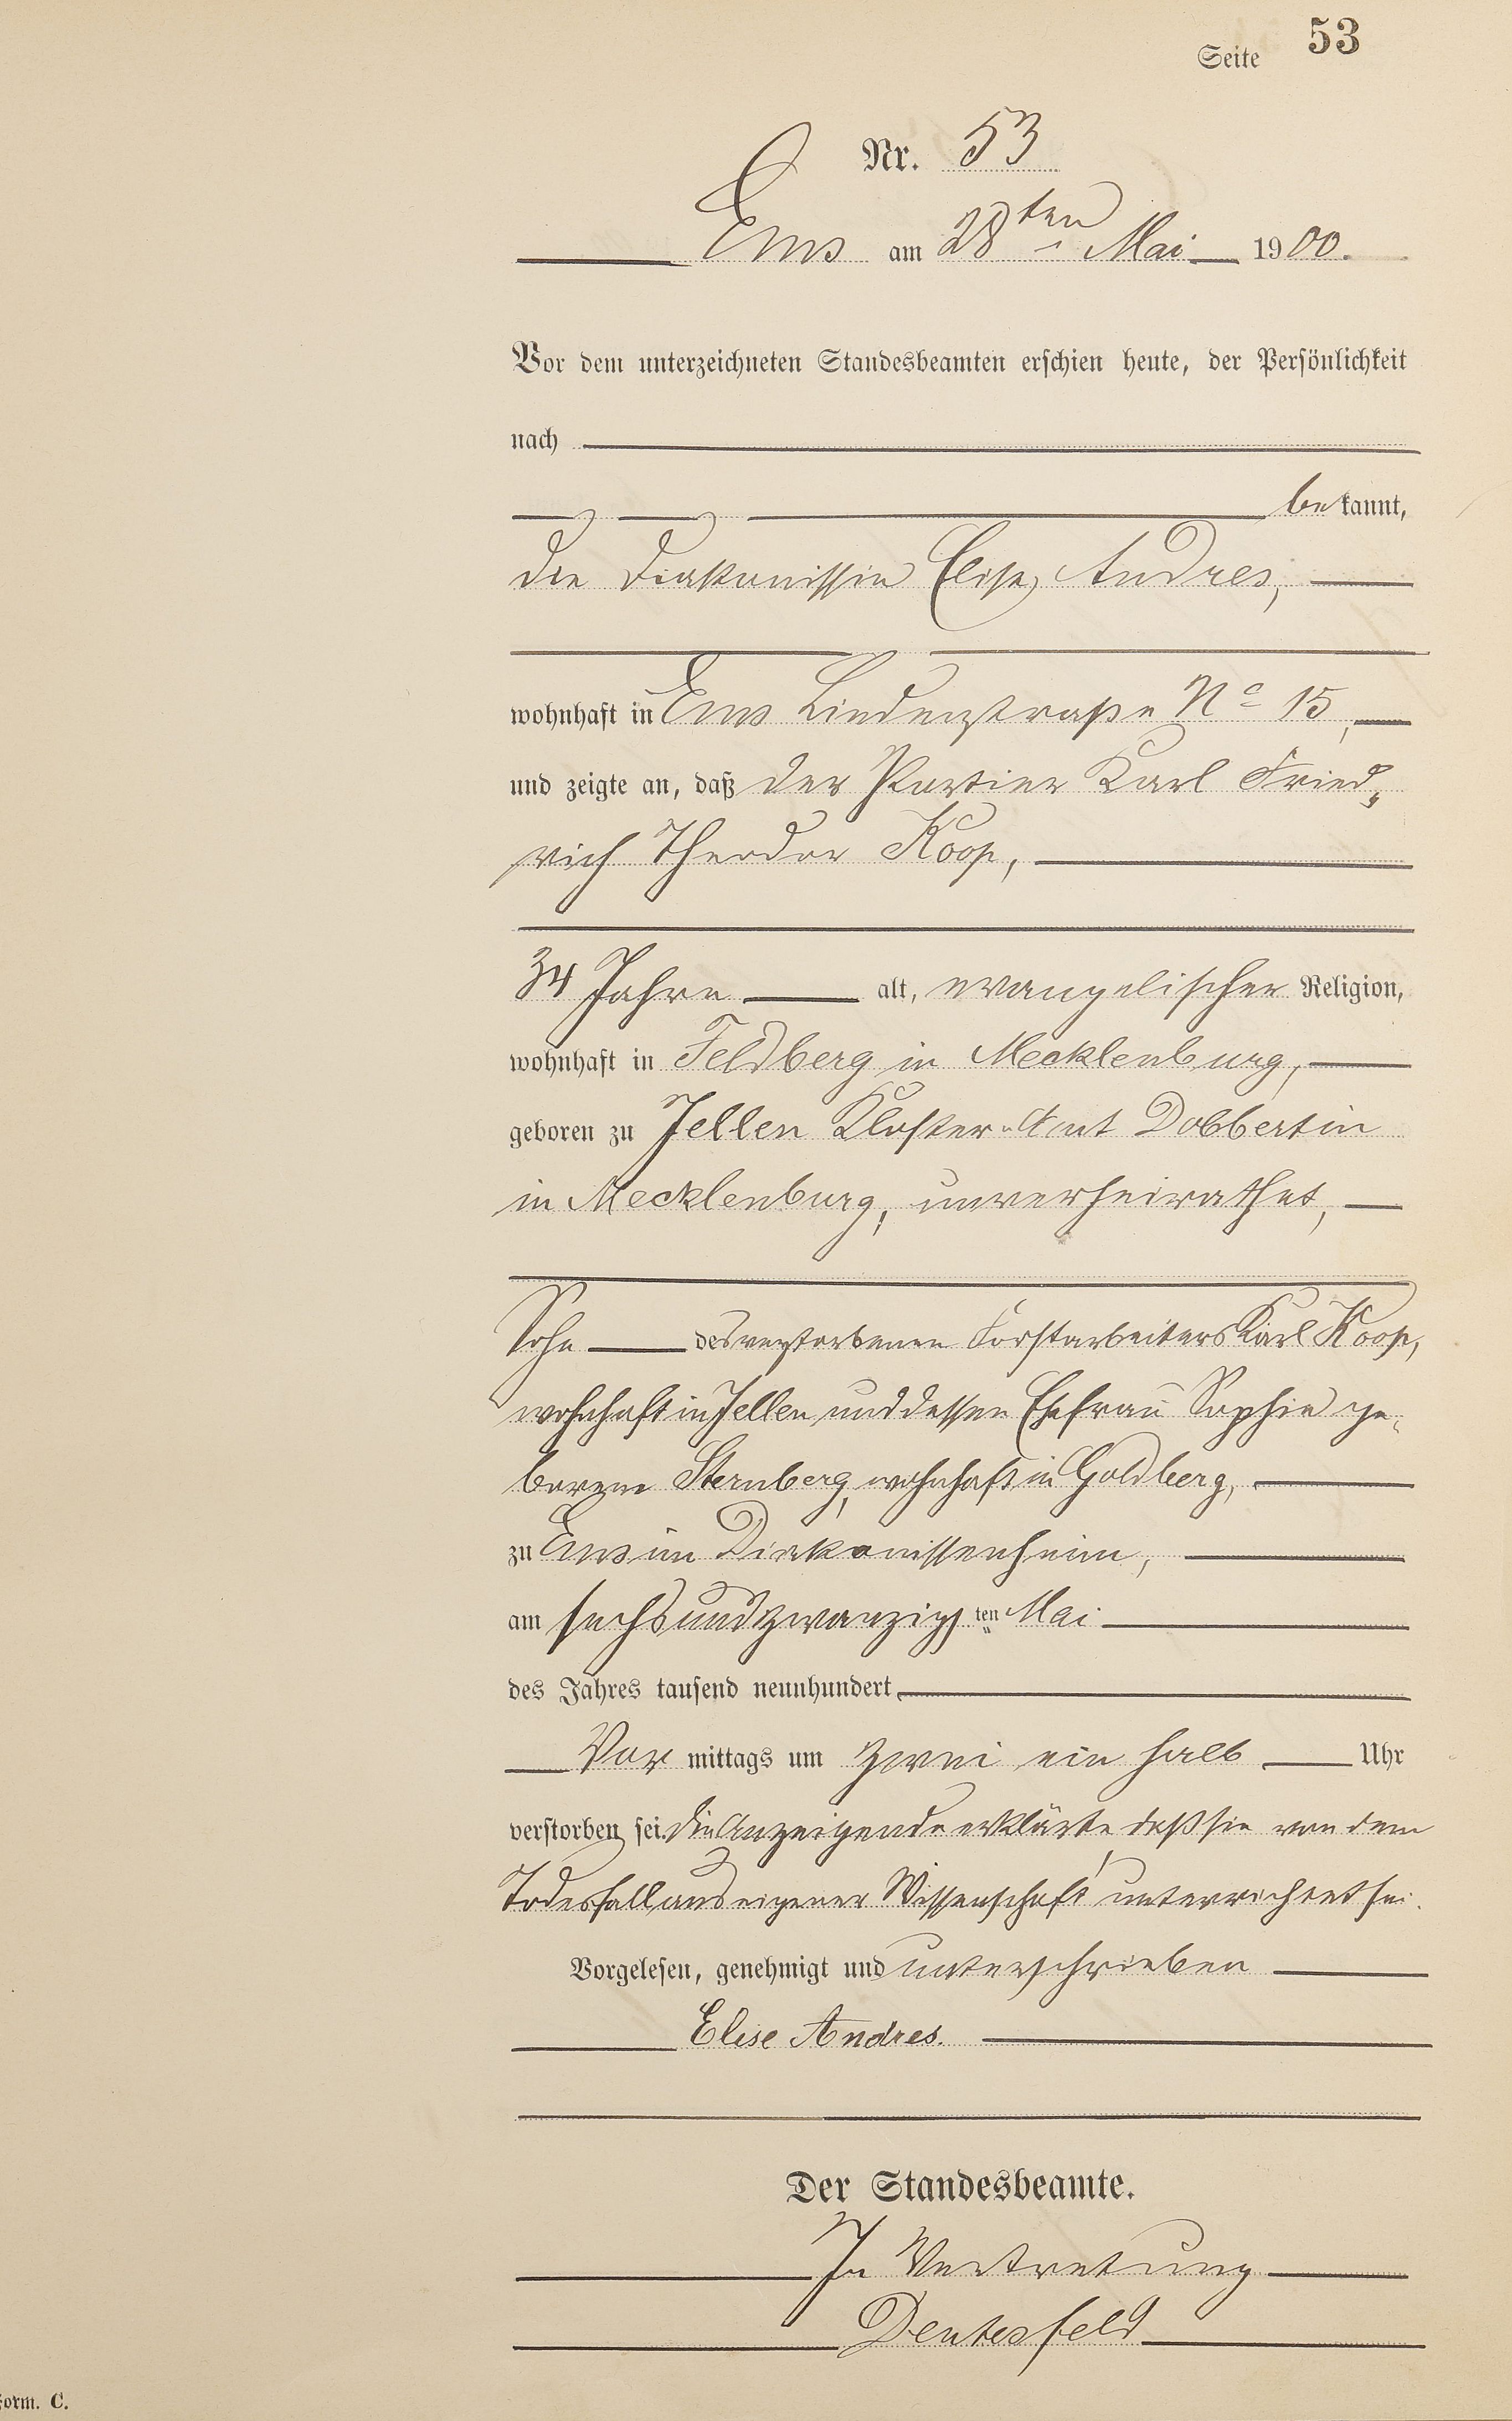 Seite 53
Nr. 53
Ems am 28ten Mai 1900.
Vor dem unterzeichneten Standesbeamten erschien heute, der Persönlichkeit
nach
bekannt,
die Diakonissin Elise Andres,
wohnhaft in Ems Lindenstraße No 15,
und zeigte an, daß der Portier Karl Fried„
rich Theodor Koop,
34 Jahre alt, evangelischer Religion,
wohnhaft in Feldberg in Mecklenburg,
geboren zu Jellen Kloster-Amt Dobbertin
in Mecklenburg, unverheirathet,
Sohn des verstorbenen Forstarbeiters Karl Koop,
wohnhaft in Jellen und dessen Ehefrau Sophie ge-
borene Sternberg, wohnhaft in Goldberg,
zu Ems im Diakonissenheim,
am sechsundzwanzigsten Mai
des Jahres tausend neunhundert
Vor mittags um zwei ein halb Uhr
verstorben sei. Die Anzeigende erklärte, daß sie von dem
Todesfall aus eigener Wissenschaft unterrichtet sei.
Vorgelesen, genehmigt und unterschrieben
Elise Andres.
Der Standesbeamte.
In Vertretung
Dentesfeld
Form. C.